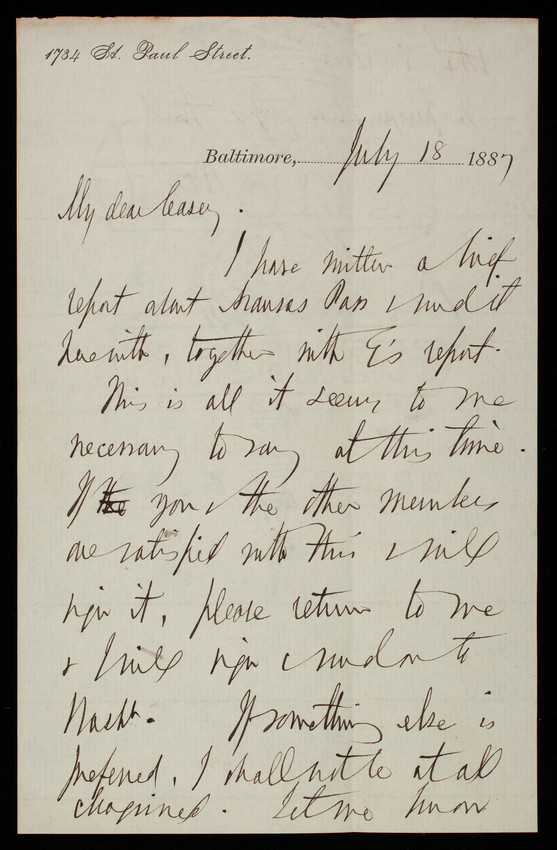 1734 St. Paul Street.
Baltimore, July 18 1887
My dear Casey.
I have written a brief
report about Aransas Pass & send it
herewith, together with E's report.
This is all it seems to me
necessary to say at this time.
If the you & the other members
are satisfied with this & will
sign it, please return to me
& I will sign & send on to
Washn. If something else is
preferred, I shall not be at all
chagrined. Let me know